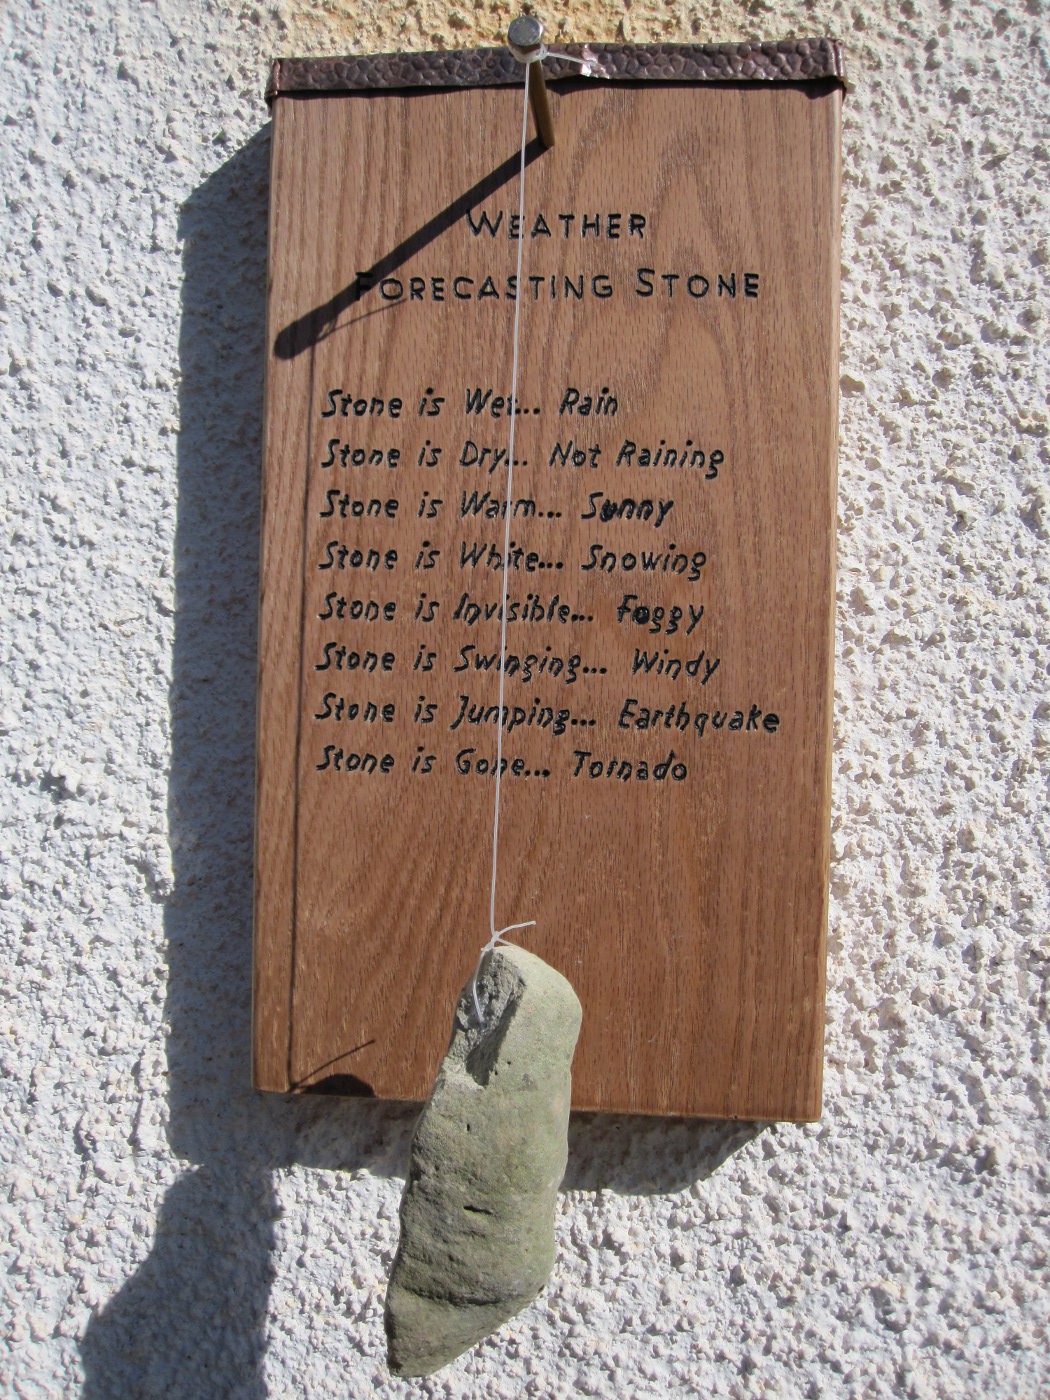 WEATHER
FORECASTING STONE
Stone is Wet... Rain
Stone is Dry... Not Raining
Stone is Warm... Sunny
Stone is White... Snowing
Stone is Invisible... Foggy
Stone is Swinging... Windy
Stone is Jumping... Earthquake
Stone is Gone... Tornado